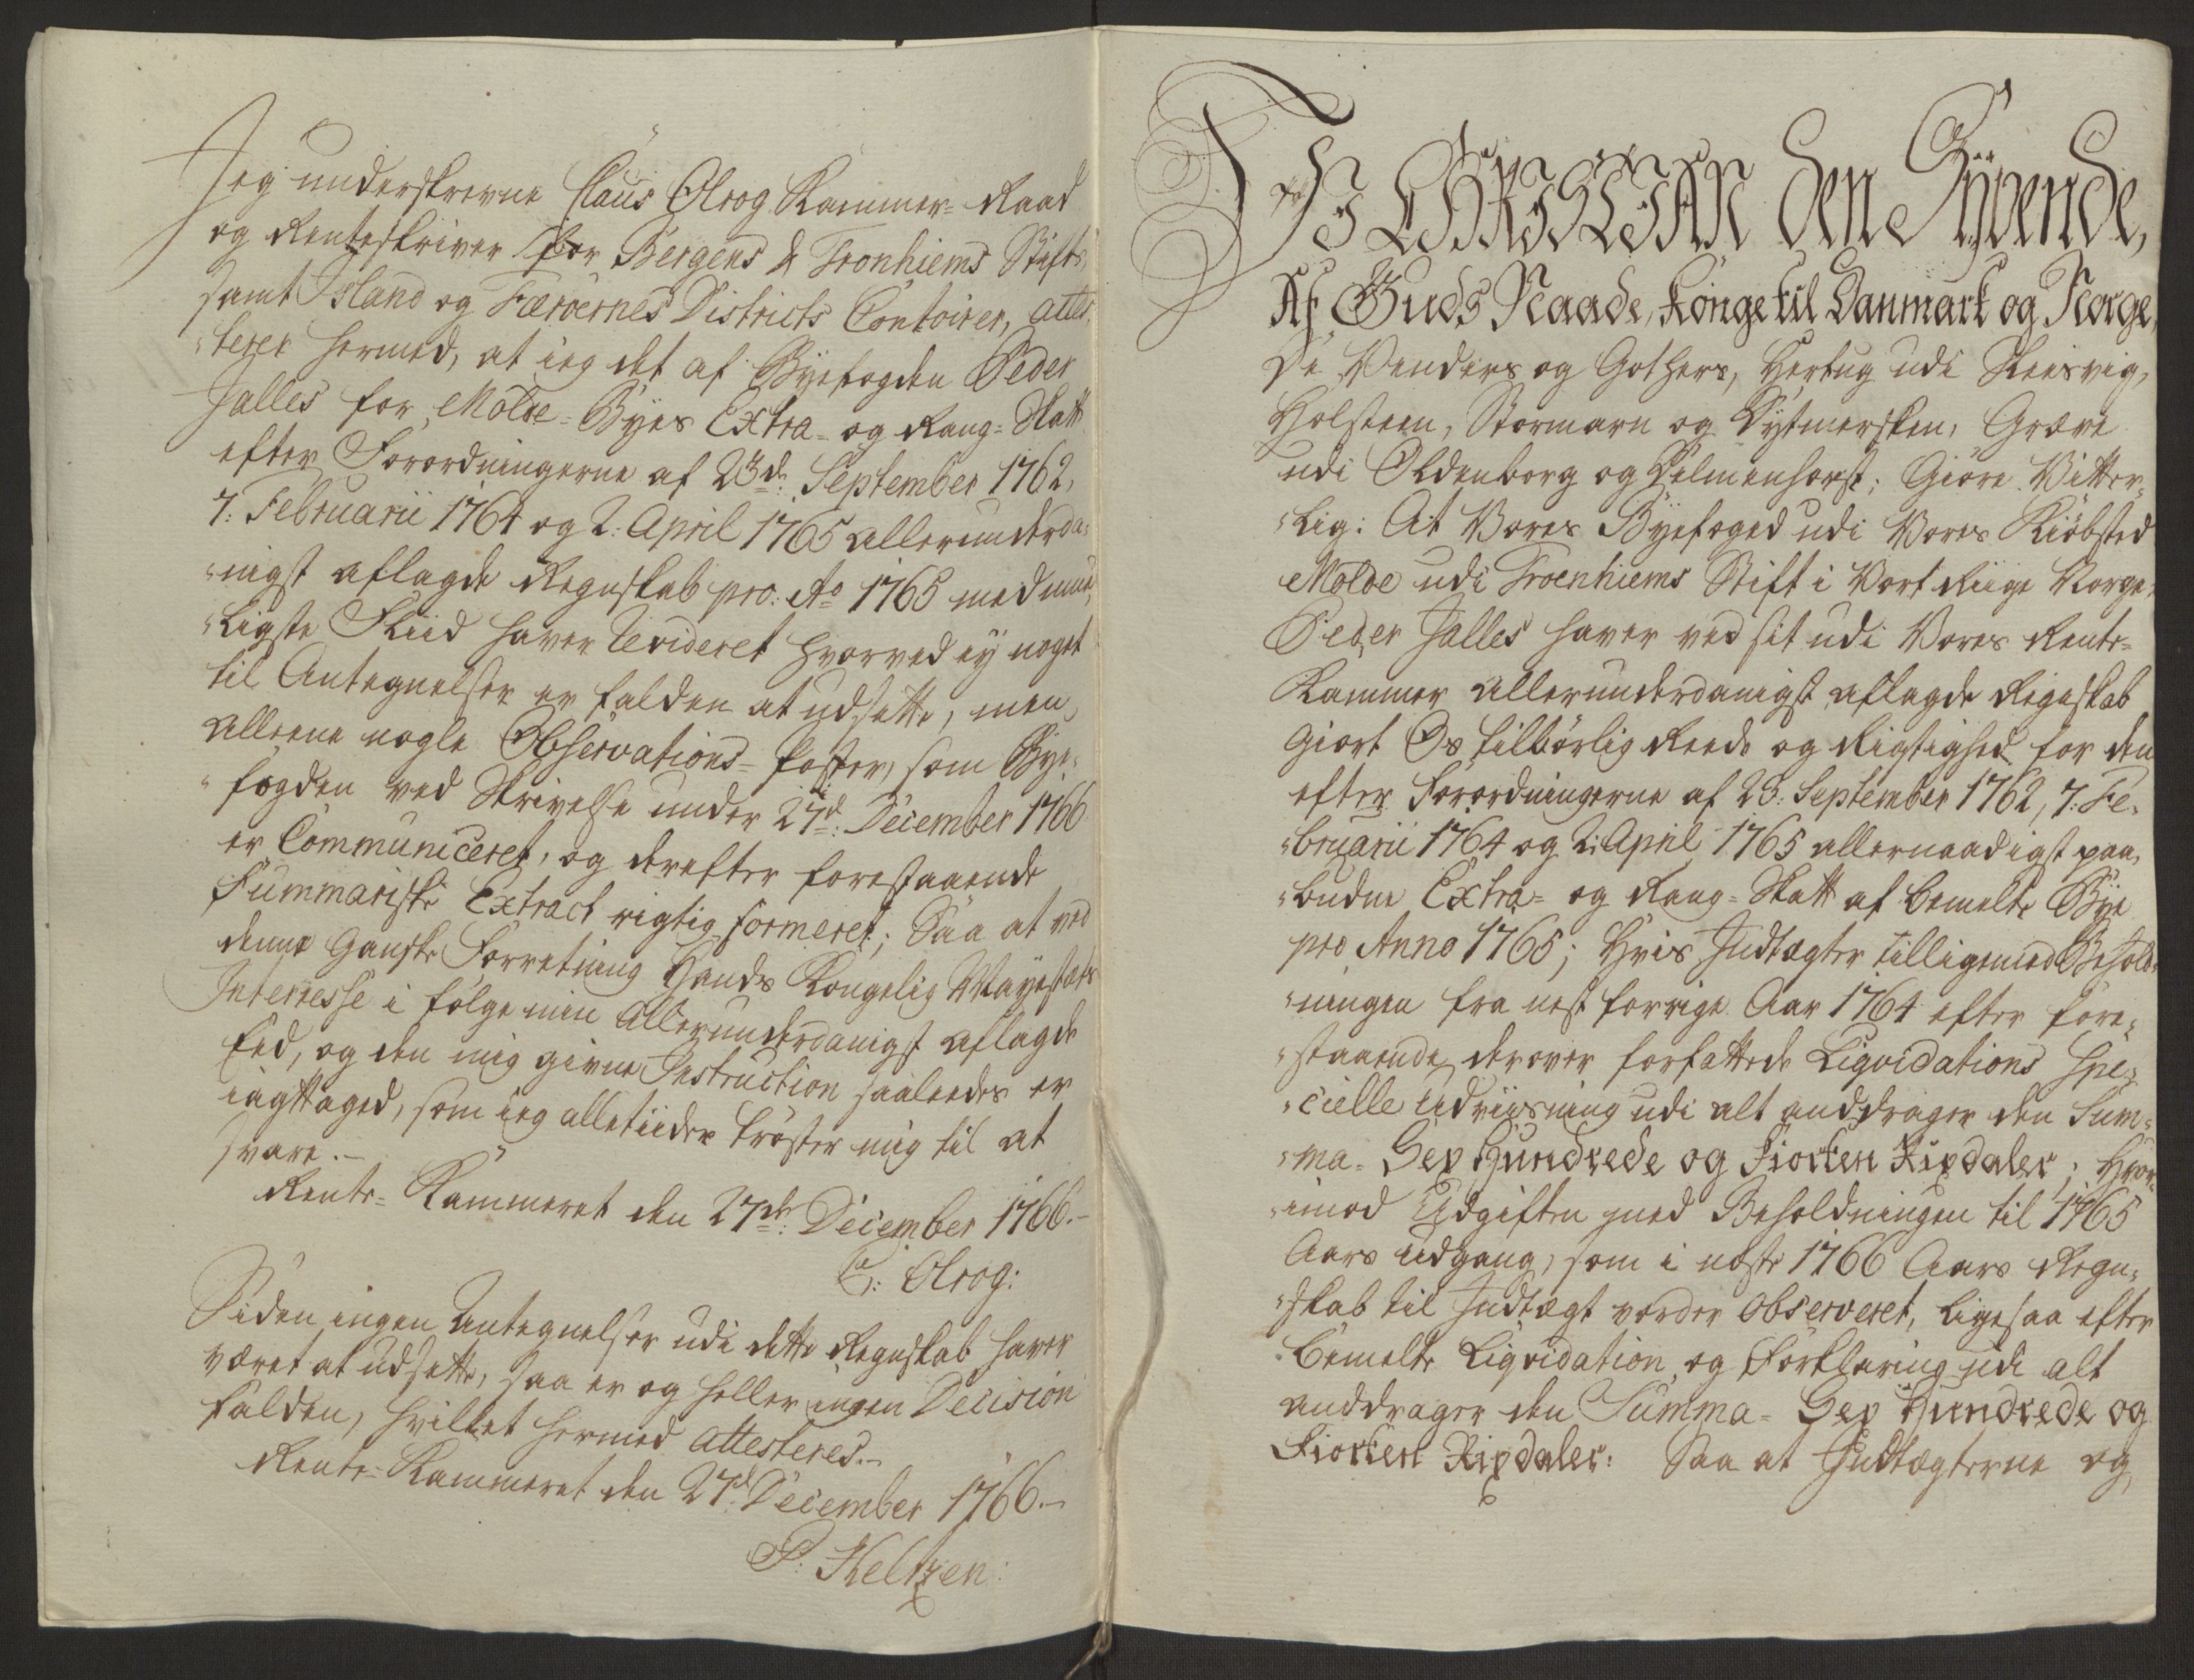 Jeg underskrevne Claus Olrog Kammer-Raad
og Renteskriver for Bergens & Tronhiems Stifts,
samt Island og Færøernes Districts Contoirer, attes-
„terer hermed, at ieg det af Byefogden Peder
Jalles for Molde-Byes Extra- og Rang-Skatt
efter Forordningerne af 23de September 1762,
7: Februarii 1764 og 2: April 1765 allerunderda-
„nigst aflagde Regnskab pro: Ao 1765 med muu-
„ligste Fliid haver Revideret hvorved ey noget
til Antegnelser er falden at udsette, men
alleene nogle Observations-Poster, som Bye-
„fogden ved Skrivelse under 27de December 1766
er Communiceret, og derefter forestaaende
Summariske Extract rigtig formeret; Saa at ved
denne gandske Forretning Hands Kongelig Mayestæts
Interesse i følge min allerunderdanigst aflagde
Eed, og den mig givne Instruction saaleedes er
iagttaged, som ieg alletiider trøster mig til at
svare.-
Rente-Kammeret den 27de December 1766.-
C: Olrog:
Siden ingen Antegnelser udi dette Regnskab haver
været at udsette, saa er og heller ingen Decision
falden, hvilket hermed attesteres.-
Rente-Kammeret den 27d: December 1766.-
P: Heltzen:
Wi CHRISTIAN den Syvende,
Af Guds Naade, Konge til Danmark og Norge,
De Venders og Gothers, Hertug udi Slesvig,
Holsteen, Stormarn og Dytmersken, Greve
udi Oldenborg og Delmenhorst; Giøre Vitter-
„lig: At Vores Byefoged udi Vores Kiøbsted
Molde udi Troenhiems Stift i Vort Riige Norge,
Peder Jalles haver ved sit udi Vores Rente-
Kammer allerunderdanigst aflagde Regnskab
giort Os tilbørlig Reede og Rigtighed for den
efter Forordningerne af 23: September 1762, 7: Fe-
„bruarii 1764 og 2: April 1765 allernaadigst paa-
„budne Extra- og Rang-Skatt af bemelte Bye
pro Anno 1765; Hvis Indtægter tilligemed Behold-
„ningen fra nest forrige Aar 1764 efter fore-
„staaende derover forfattede Liqvidations Spe-
„cielle Udviisning udi alt anddrager den Sum-
„ma- Sex Hundrede og Fiorten Rixdaler; Hvor-
„imod Udgiften med Beholdningen til 1765
Aars Udgang, som i neste 1766 Aars Regn-
„skab til Indtægt vorder observeret, ligesaa efter
bemelte Liqvidation og Forklaring udi alt
anddrager den Summa- Sex Hundrede og
Fiorten Rixdaler: Saa at Indtægterne og